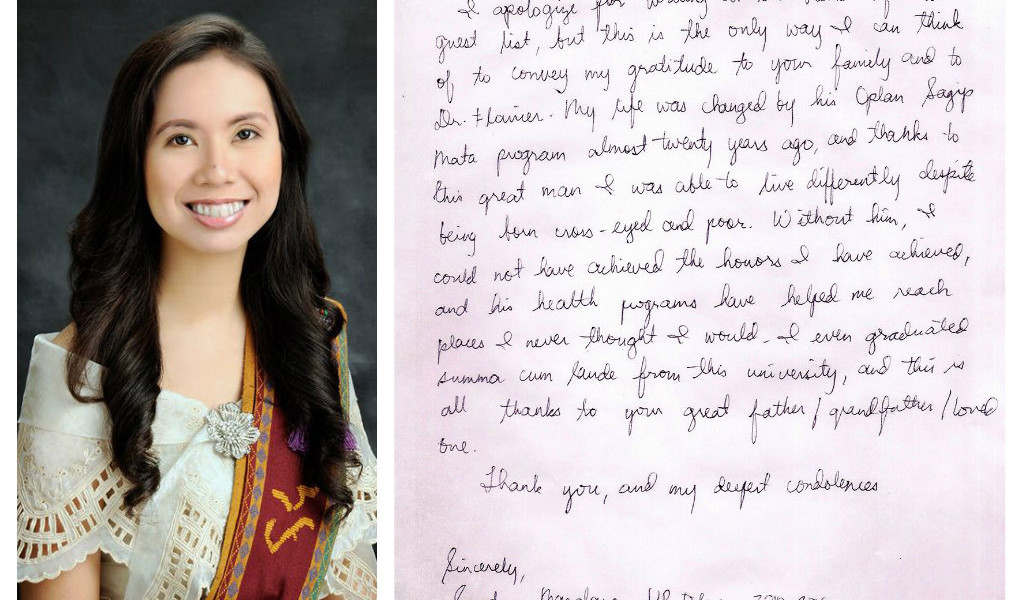 I apologize for
guest list, but this is the only way I can think
of to convey my gratitude to your family and to
Dr. Flavier. My life was changed by his Oplan Sagip
Mata program almost twenty years ago, and thanks to
this great man I was able to live differently despite
being born cross-eyed and poor. Without him, I
could not have achieved the honors I have achieved,
and his health programs have helped me reach
places I never thought I would. I even graduated
summa cum laude from this university, and this is
all thanks to your great father/grandfather/loved
one.
Thank you, and my deepest condolences
Sincerely,